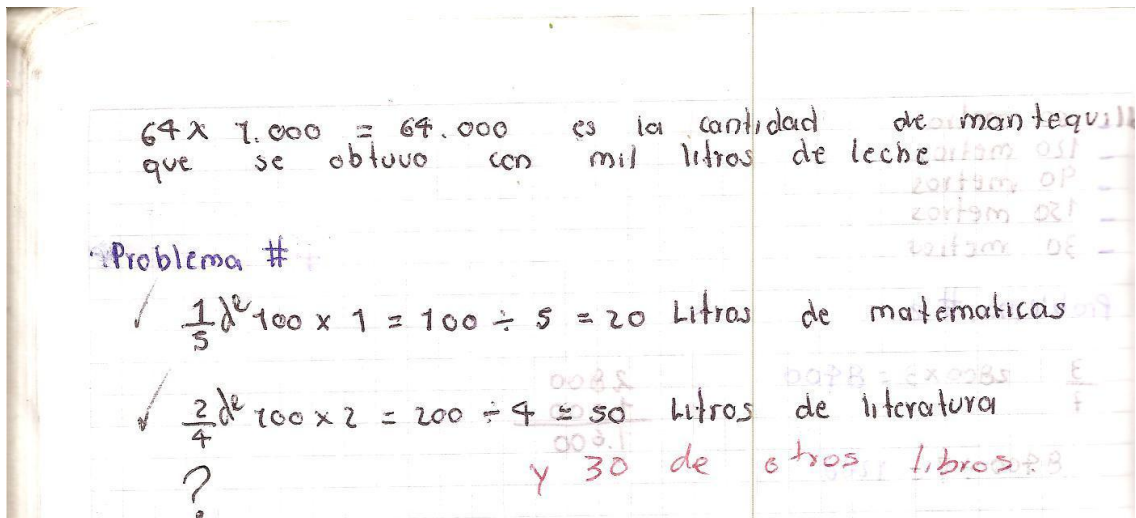 64 x 1.000 = 64.000 es la cantidad de mantequill
que se obtuvo con mil litros de leche
Problema #
1/5 de 100 x 1 = 100 ÷ 5 = 20 Litros de matematicas
2/4 de 100 x 2 = 200 ÷ 4 = 50 Litros de literatura
?
y 30 de otros libros.